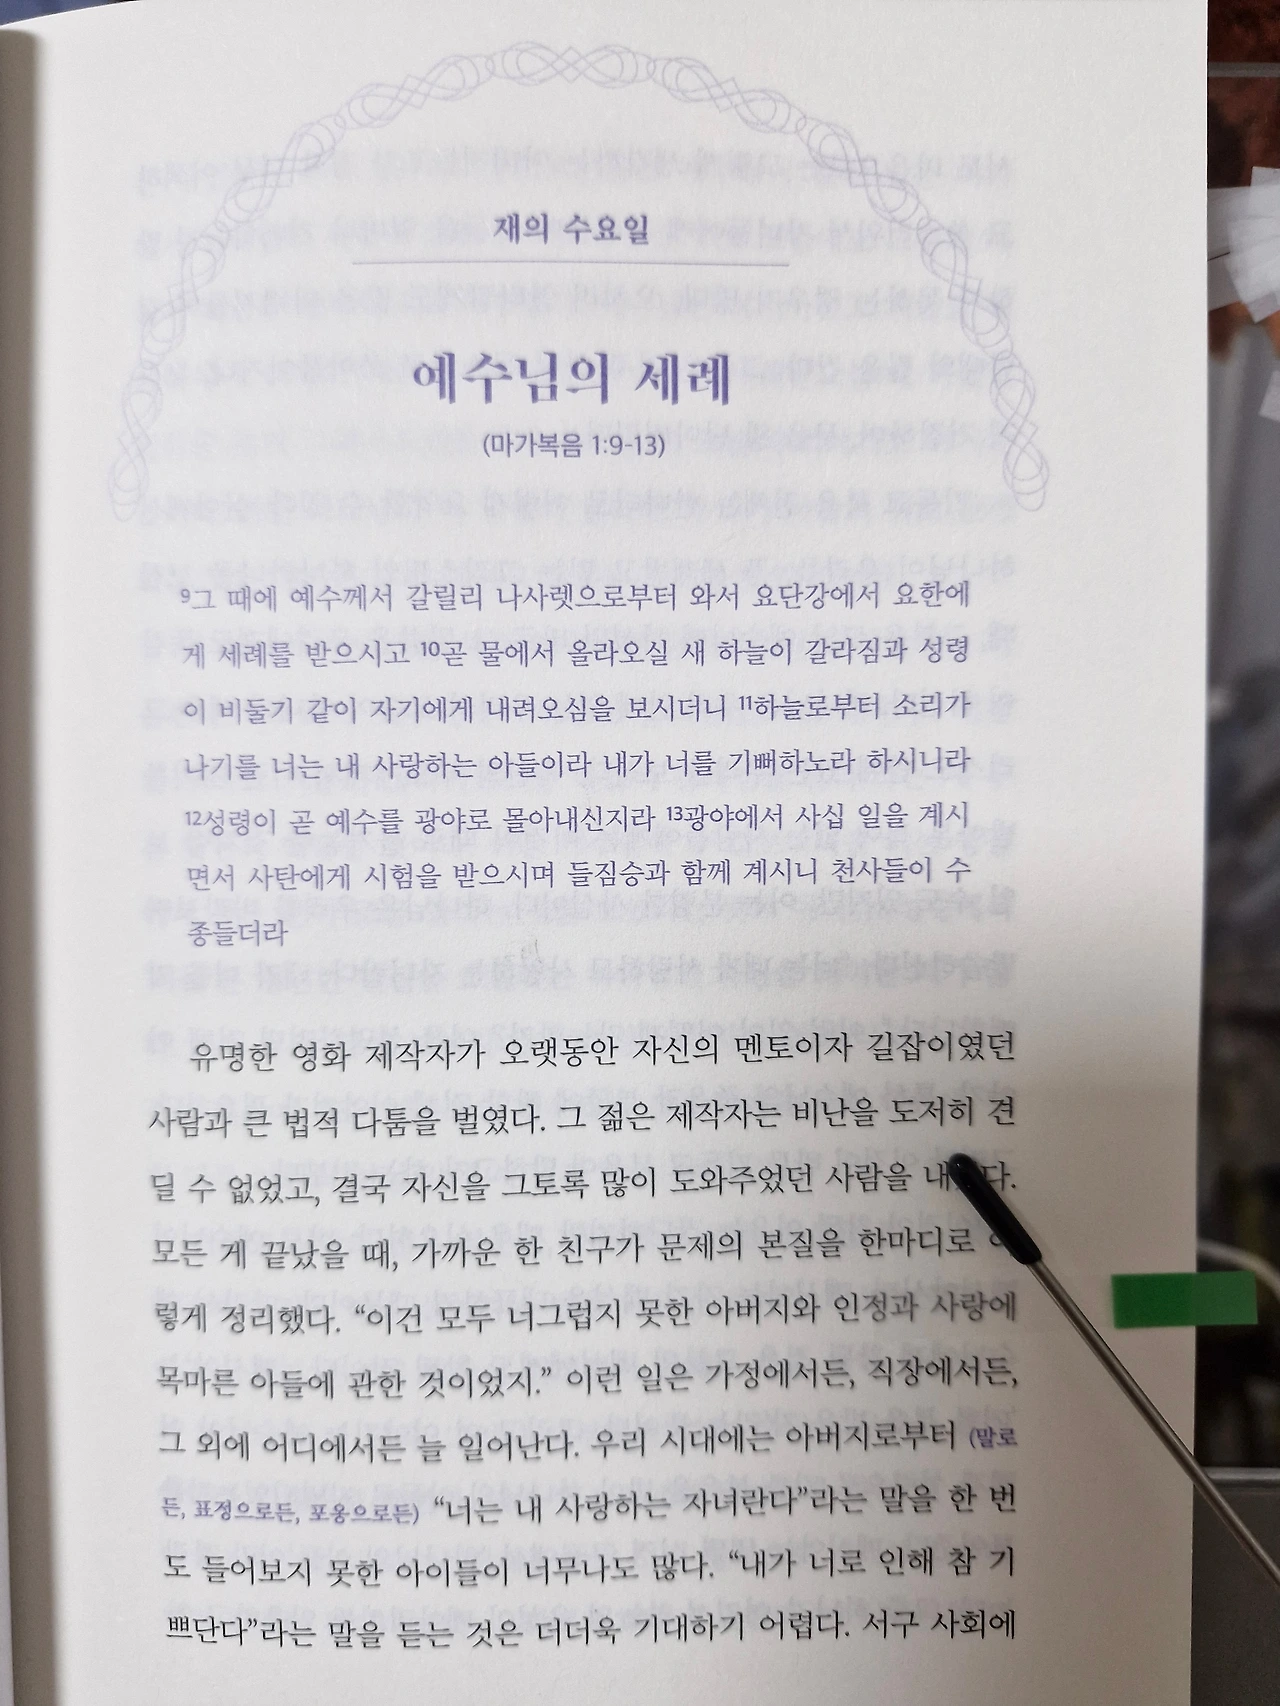 재의 수요일
예수님의 세례
(마가복음 1:9-13)
9그 때에 예수께서 갈릴리 나사렛으로부터 와서 요단강에서 요한에
게 세례를 받으시고 10곧 물에서 올라오실 새 하늘이 갈라짐과 성령
이 비둘기 같이 자기에게 내려오심을 보시더니 11하늘로부터 소리가
나기를 너는 내 사랑하는 아들이라 내가 너를 기뻐하노라 하시니라
12성령이 곧 예수를 광야로 몰아내신지라 13광야에서 사십 일을 계시
면서 사탄에게 시험을 받으시며 들짐승과 함께 계시니 천사들이 수
종들더라
유명한 영화 제작자가 오랫동안 자신의 멘토이자 길잡이였던
사람과 큰 법적 다툼을 벌였다. 그 젊은 제작자는 비난을 도저히 견
딜 수 없었고, 결국 자신을 그토록 많이 도와주었던 사람을
모든 게 끝났을 때, 가까운 한 친구가 문제의 본질을 한마디로
렇게 정리했다. “이건 모두 너그럽지 못한 아버지와 인정과 사랑에
목마른 아들에 관한 것이었지.” 이런 일은 가정에서든, 직장에서든,
그 외에 어디에서든 늘 일어난다. 우리 시대에는 아버지로부터 (말로
든, 표정으로든, 포옹으로든) “너는 내 사랑하는 자녀란다”라는 말을 한 번
도 들어보지 못한 아이들이 너무나도 많다. “내가 너로 인해 참 기
쁘단다”라는 말을 듣는 것은 더더욱 기대하기 어렵다. 서구 사회에